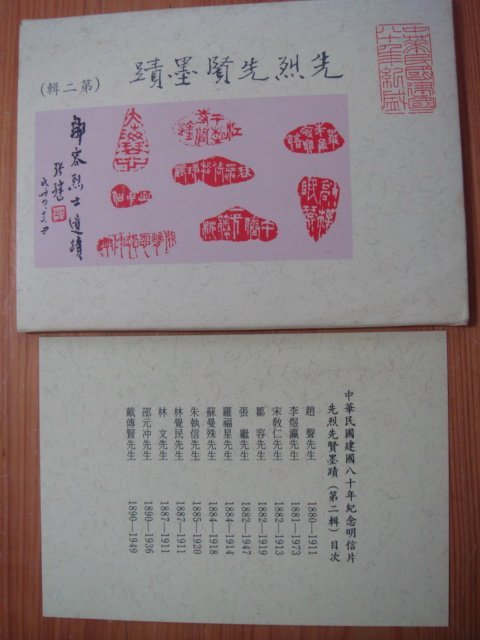 先烈先賢墨蹟(第二輯)
中華民國建國
八十年紀念
鄒容烈士遺蹟
張繼
中華民國建國八十年紀念明信片
先烈先賢墨蹟(第二輯)目次
趙 聲先生 1880—1911
李煜瀛先生 1881—1973
宋教仁先生 1882—1913
鄒 容先生 1882—1919
張 繼先生 1882—1947
羅福星先生 1884—1914
蘇曼殊先生 1884—1918
朱執信先生 1885—1920
林覺民先生 1887—1911
林 文先生 1887—1911
邵元冲先生 1890—1936
戴傳賢先生 1890—1949